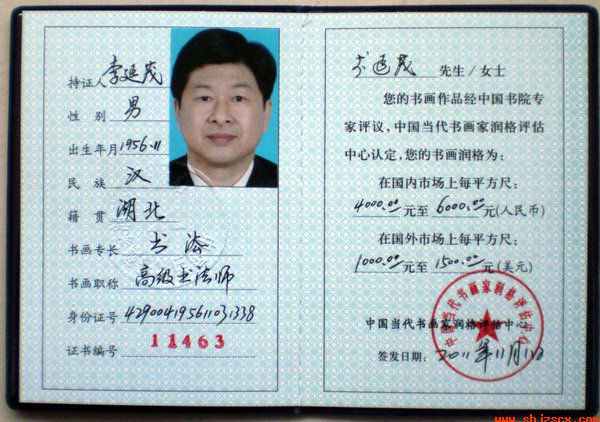 持证人 李延茂
性别 男
出生年月 1956.11
民族 汉
籍贯 湖北
书画专长 书法
书画职称 高级书法师
身份证号 429004195611031338
证书编号 11463
李延茂 先生/女士
您的书画作品经中国书院专
家评议,中国当代书画家润格评估
中心认定,您的书画润格为:
在国内市场上每平方尺:
4000.00元至 6000.00元(人民币)
在国外市场上每平方尺:
1000.00元至 1500.00元(美元)
中国当代书画家润格评估中心
中国当代书画家润格评估中心
签发日期: 2011年11月
www.shizscx.com